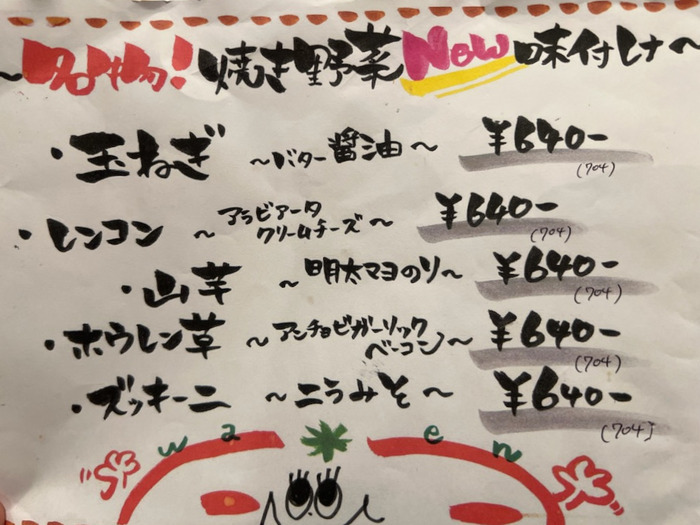 ~名物!焼き野菜New味付け~
・玉ねぎ ~バター醤油~ ¥640-
(704)
・レンコン ~アラビアータ
クリームチーズ~ ¥640-
(704)
・山芋 ~明太マヨのり~ ¥640-
(704)
・ホウレン草 ~アンチョビガーリック
ベーコン~ ¥640-
(704)
・ズッキーニ ~ニラみそ~ ¥640-
(704)
wa en